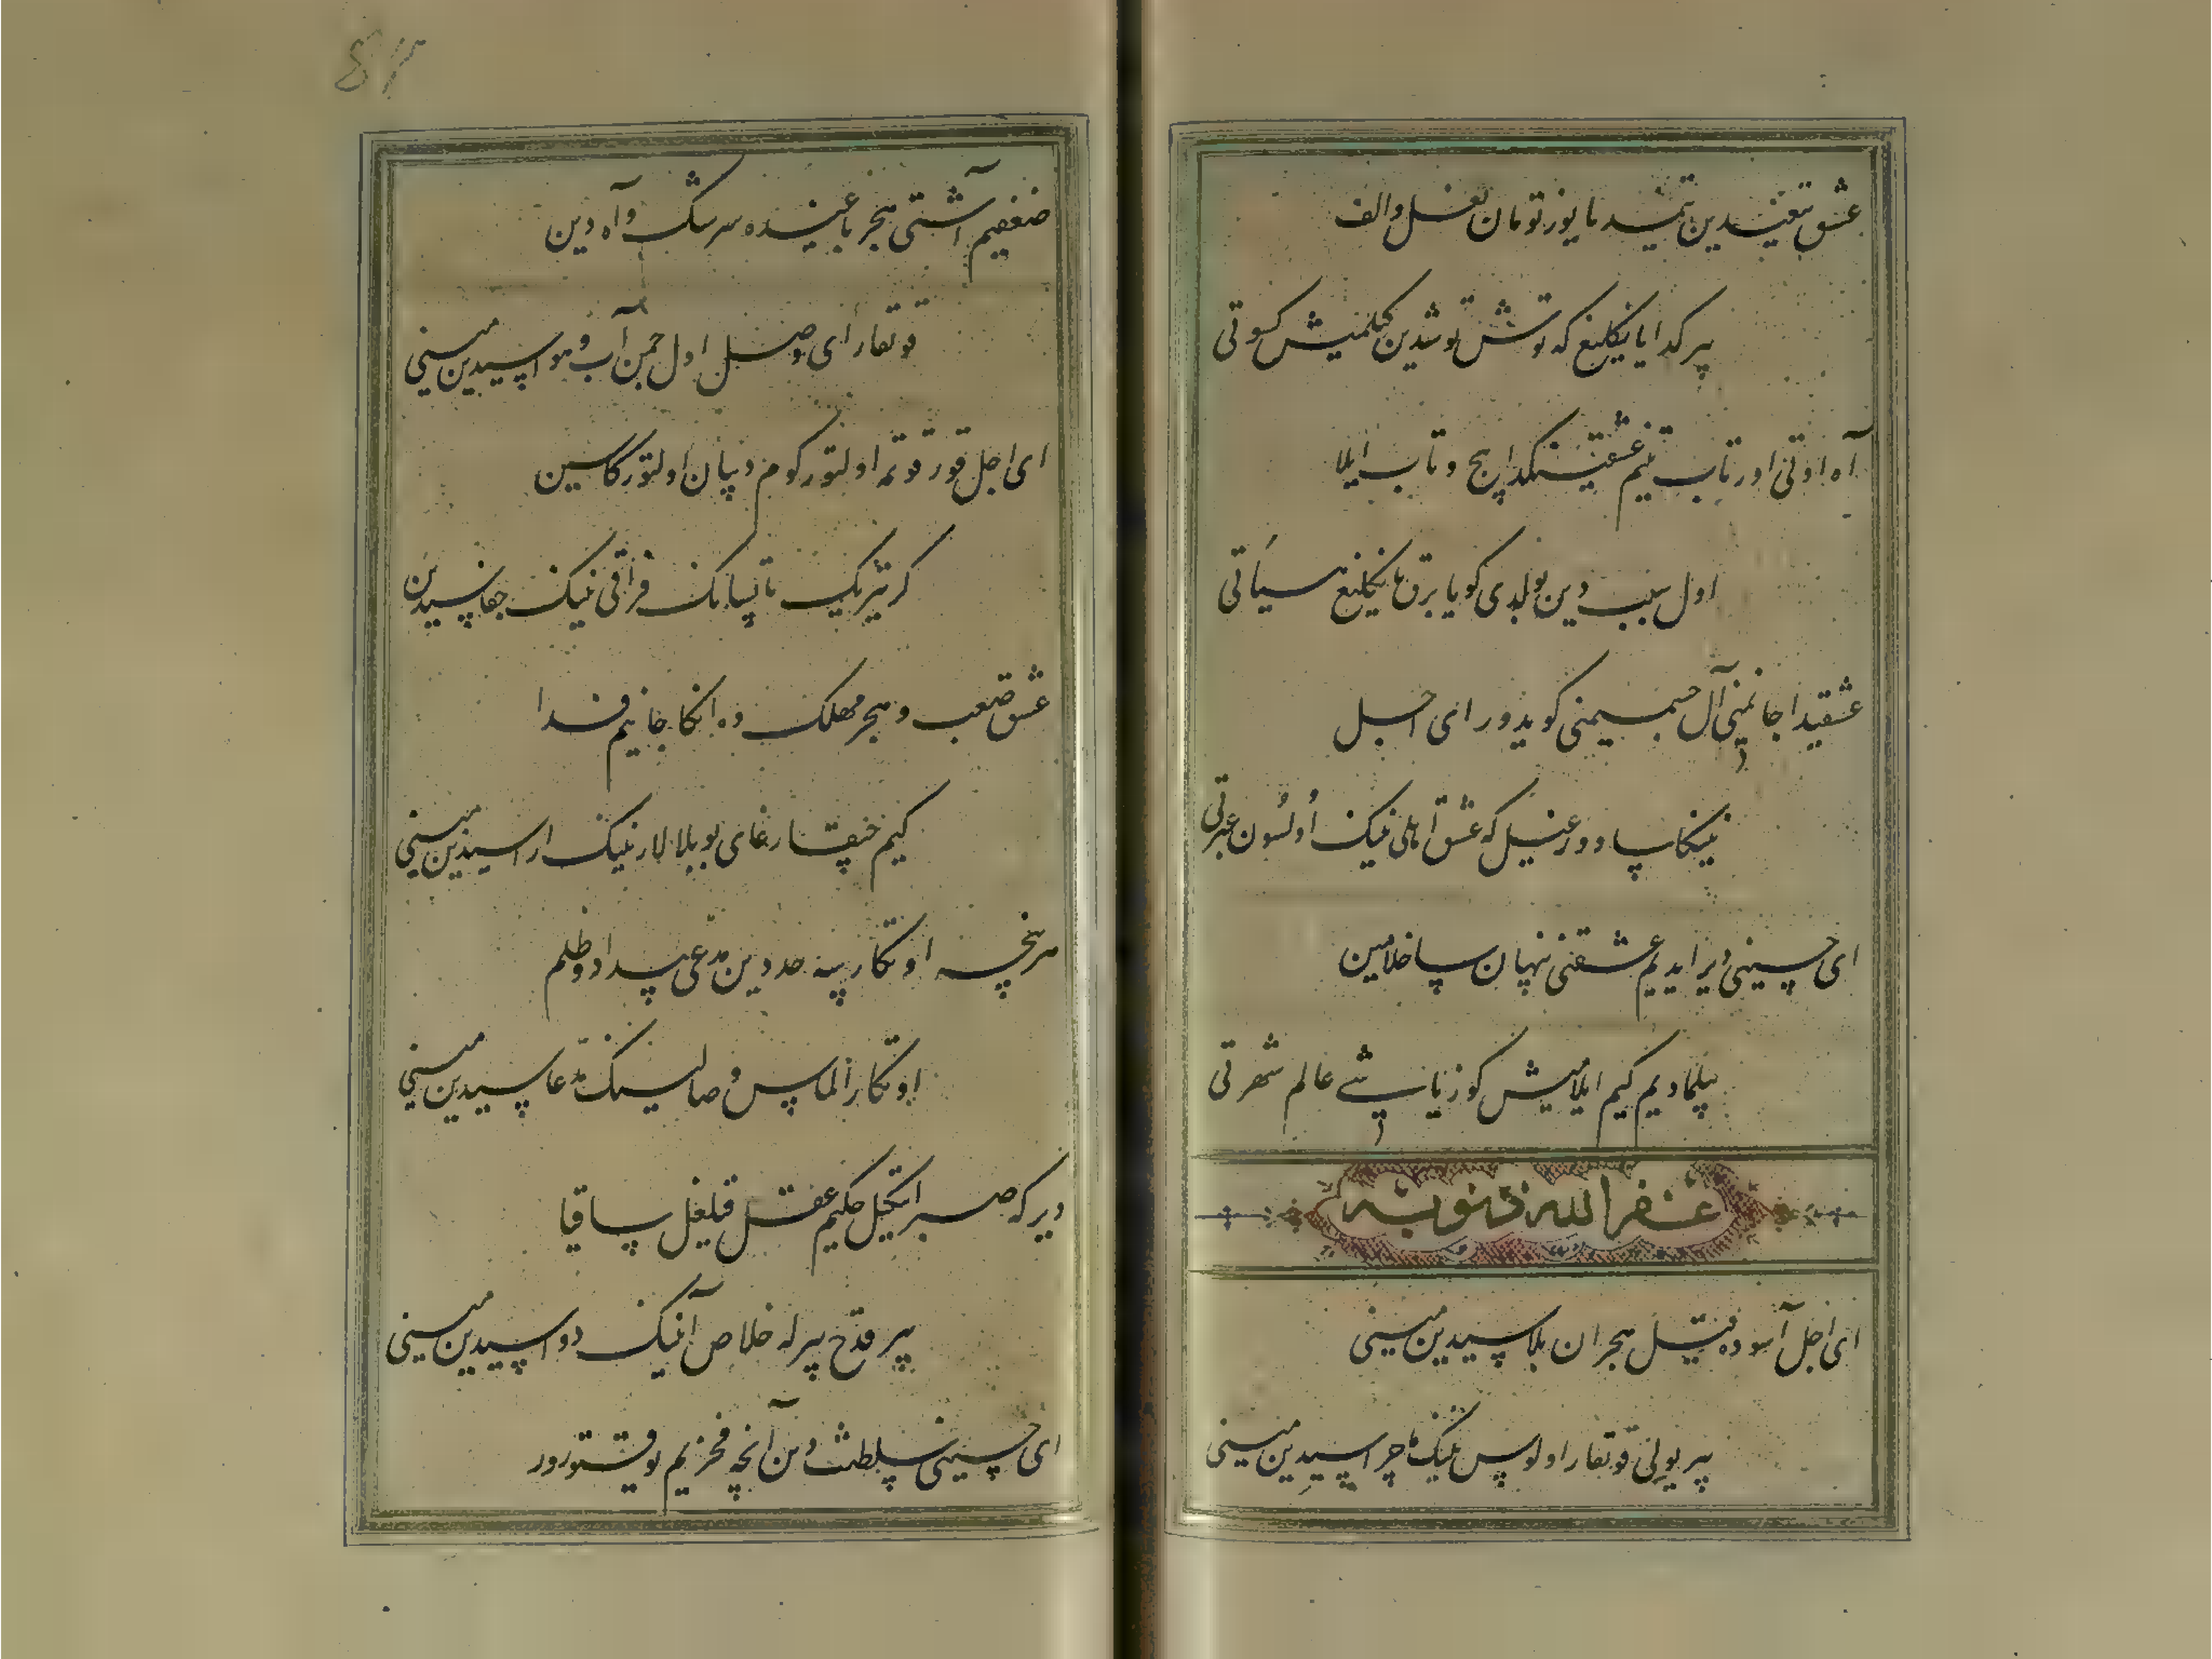 عشق تیغیدین تنیمدا یوز تومان نعل و الف
بیر کدا یانکلیغ که توش توشدین تیکلمیش کسوتی
آه اوتی اورتاب تنیم عشقینکدا پیچ و تاب ایلا
اول سببدین بولدی کویا برق یانکلیغ هیاتی
عشقیدا جانیمنی آل جسمیمنی کویدور ای اجل
ینکلا وورغیل که عشق اهلی نینک اولسون عبرتی
ای حسینی دیر ایدیم عشقنی پنهان ساخلامین
بیلمادیم کیم ایلامیش کوز یاشی عالم شهرتی
غفر الله ذنوبه
ای اجل آسوده قیل هجران بلاسیدین مینی
بیر یولی قوتقار اولوس نینک ماجراسیدین مینی
ضعفیم آشتی هجر باغینده سرشک و آه دین
قوتقار ای وصل اول چمن آب و هواسیدین مینی
ای اجل قورقوتمه اولتورکوم دیبان اولتورکاسین
کر تیریک تابسانک فراقی نینک جفاسیدین
عشق صعب و هجر مهلک وه انکا جانیم فدا
کیم چیقارغای بو بلالار نینک اراسیدین مینی
هر نیچه اوتکارسه حددین مدعی بیداد و ظلم
اوتکارالماس وصالینک مدعاسیدین مینی
دیر که صبر ایتکیل حکیم عقل قیلغیل ساقیا
بیر قدح بیرله خلاص آنینک دواسیدین مینی
ای حسینی سلطنت دین آنچه فخریم یوقتورور